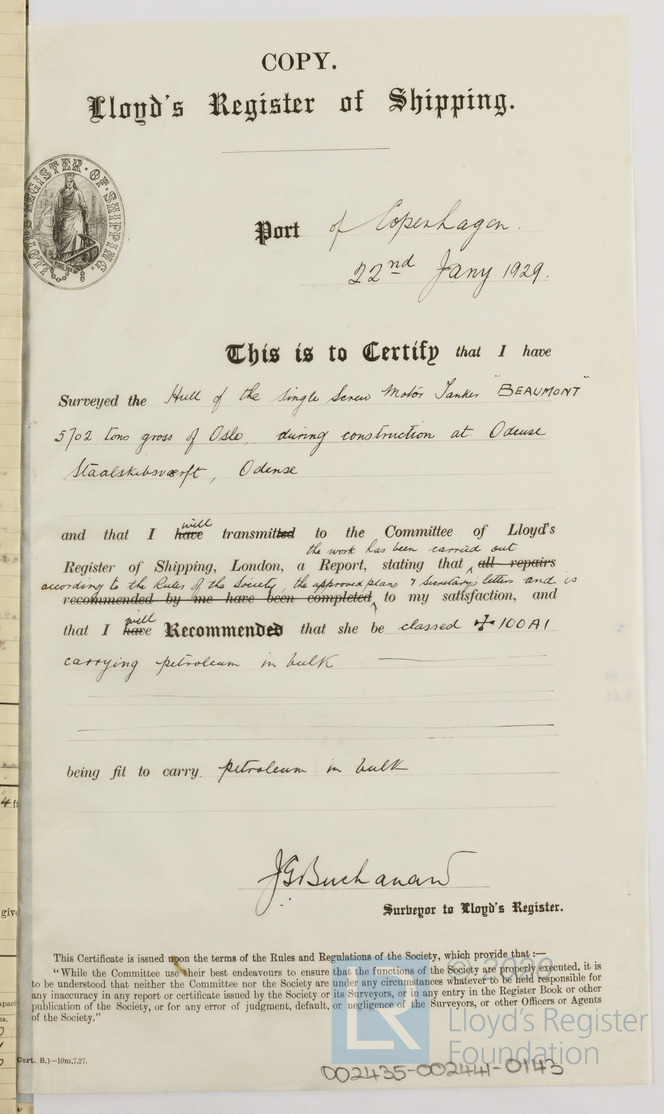 COPY.
Lloyd's Register of Shipping.
LLOYD'S REGISTER OF SHIPPING.
Port of Copenhagen.
22nd Jany 1929.
This is to Certify that I have
Surveyed the Hull of the single Screw Motor Tanker "BEAUMONT"
5702 tons gross of Oslo, during construction at Odense
Staalskibsværft, Odense
will
and that I have transmitted to the Committee of Lloyd's
the work has been carried out
Register of Shipping, London, a Report, stating that all repairs
according to the Rules of the Society, the approved plans & Secretary's letters and is
recommended by me have been completed, to my satisfaction, and
will
that I have Recommended that she be classed ✠ 100A1
carrying petroleum in bulk
being fit to carry petroleum in bulk
J G Buchanan
Surveyor to Lloyd's Register.
This Certificate is issued upon the terms of the Rules and Regulations of the Society, which provide that :—
"While the Committee use their best endeavours to ensure that the functions of the Society are properly executed, it is
to be understood that neither the Committee nor the Society are under any circumstances whatever to be held responsible for
any inaccuracy in any report or certificate issued by the Society or its Surveyors, or in any entry in the Register Book or other
publication of the Society, or for any error of judgment, default, or negligence of the Surveyors, or other Officers or Agents
of the Society."
Cert. B.)—10m,7,27.
© 2020
LR
Lloyd's Register
Foundation
002435-002441-0143